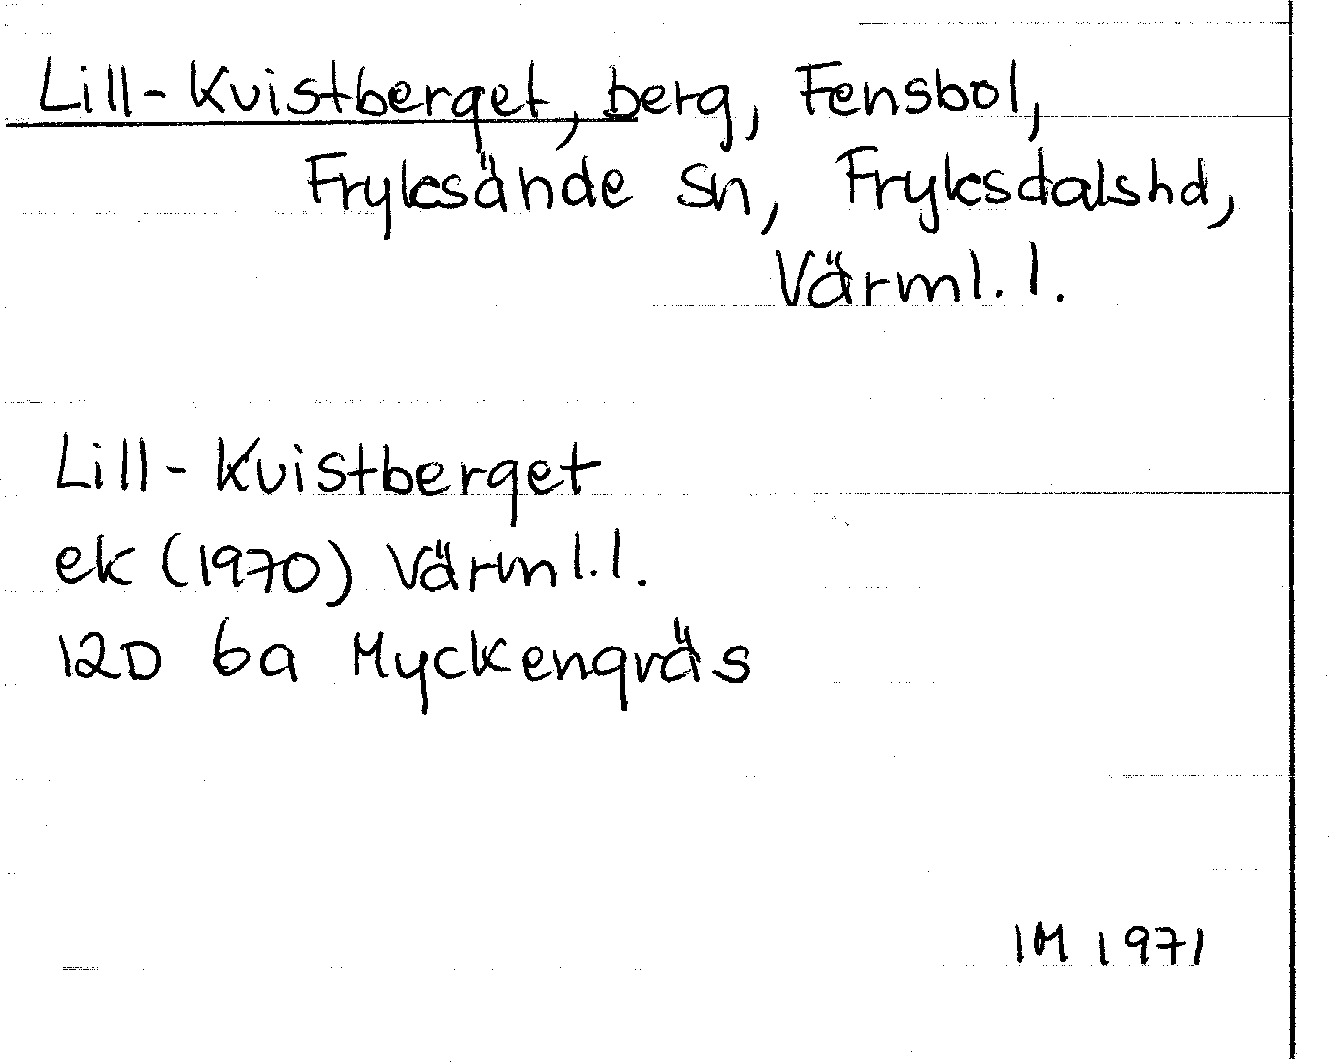 Lill-Kvistberget, berg, Fensbol,
Fryksände sn, Fryksdalshd,
Värml. l.
Lill-Kvistberget
ek (1970) Värml. l.
12D 6a Myckengräs
IM 1971